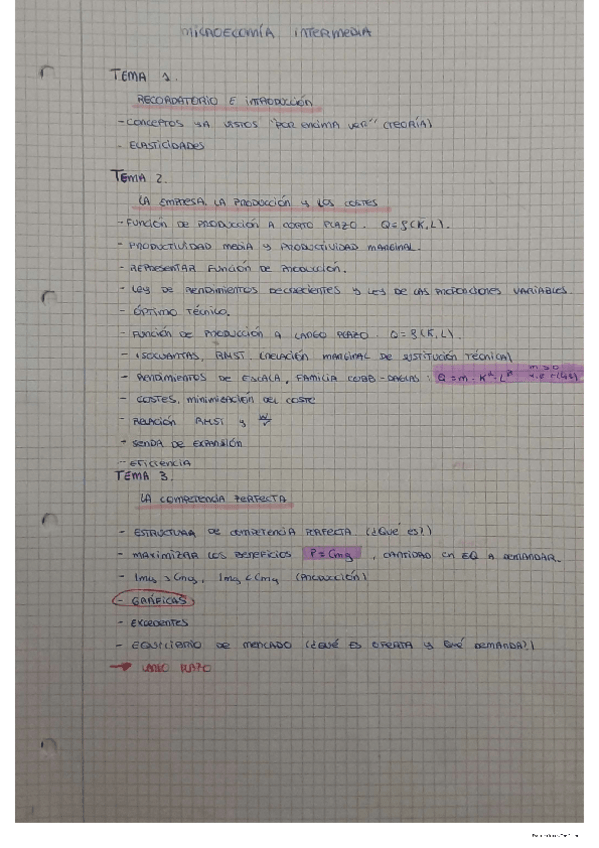 MICROECOMÍA INTERMEDIA
TEMA 1.
RECORDATORIO E INTRODUCCIÓN
- CONCEPTOS YA VISTOS "POR ENCIMA (TEORÍA)
- ELASTICIDADES
TEMA 2.
LA EMPRESA LA PRODUCCIÓN Y LOS COSTES
- FUNCIÓN DE PRODUCCIÓN A CORTO PLAZO. Q=f(K,L).
- PRODUCTIVIDAD MEDIA Y PRODUCTIVIDAD MARGINAL.
- REPRESENTAR FUNCIÓN DE PRODUCCIÓN.
- LEY DE RENDIMIENTOS DECRECIENTES Y LEY DE LAS PROPORCIONES VARIABLES.
- ÓPTIMO TÉCNICO.
- FUNCIÓN DE PRODUCCIÓN A LARGO PLAZO. Q=f(K,L).
- ISOCUANTAS, RMST (RELACIÓN MARGINAL DE SUSTITUCIÓN TÉCNICA)
- RENDIMIENTOS DE ESCALA, FAMILIA COBB-DOUGLAS: Q=m·K^α·L^β m>0
- COSTES, MINIMIZACIÓN DEL COSTE
- RELACIÓN RMST Y w/r
- SENDA DE EXPANSIÓN
- EFICIENCIA
TEMA 3.
LA COMPETENCIA PERFECTA
- ESTRUCTURA DE COMPETENCIA PERFECTA (¿QUÉ ES?)
- MAXIMIZAR LOS BENEFICIOS P=Cmg, CANTIDAD EN EQ A DEMANDAR.
- Img > Cmg, Img < Cmg (PRODUCCIÓN)
- GRÁFICAS
- EXCEDENTES
- EQUILIBRIO DE MERCADO (¿QUÉ ES OFERTA Y QUÉ DEMANDA?)
→ LARGO PLAZO